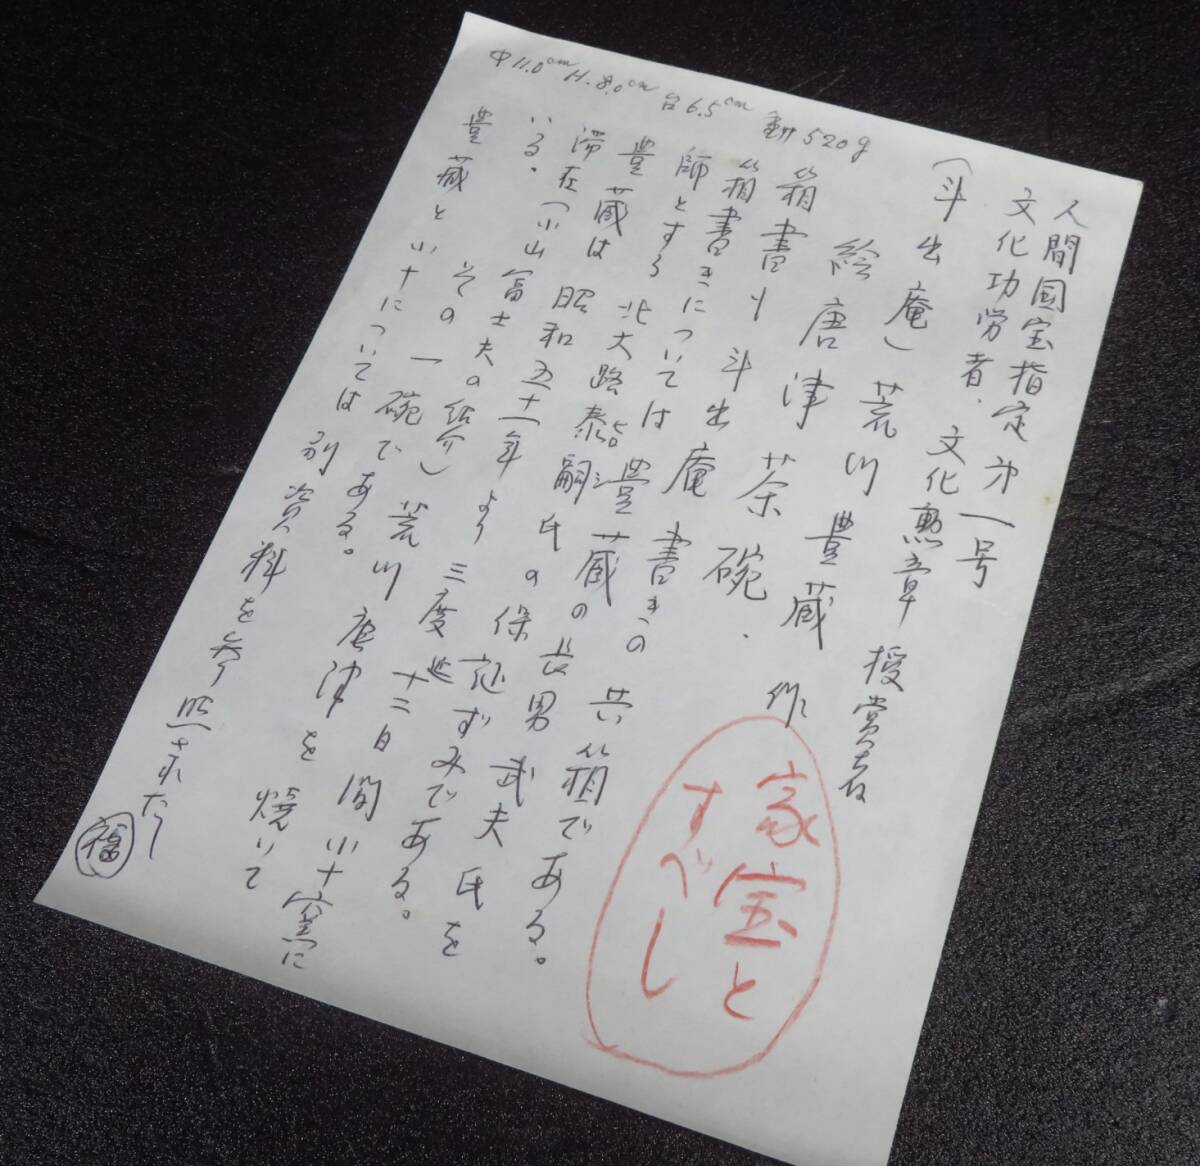 巾11.0cm H.8.0cm 台6.5cm 重サ520g
人間国宝指定 才一号
文化功労者. 文化勲章 授賞者
(斗出庵) 荒川豊蔵 作
絵唐津茶碗.
箱書リ 斗出庵 書きの 共箱である。
箱書きについては 豊蔵の長男 武夫氏を
師とする 北大路泰嗣氏の保証ずみである。
豊蔵は 昭和五十一年より三度 延十二日間 小十窯に
滞在(小山冨士夫の紹介) 荒川唐津を焼いて
いる。 その一碗である。
豊蔵と小十については別資料を参照されたし
福
家宝と
すべし